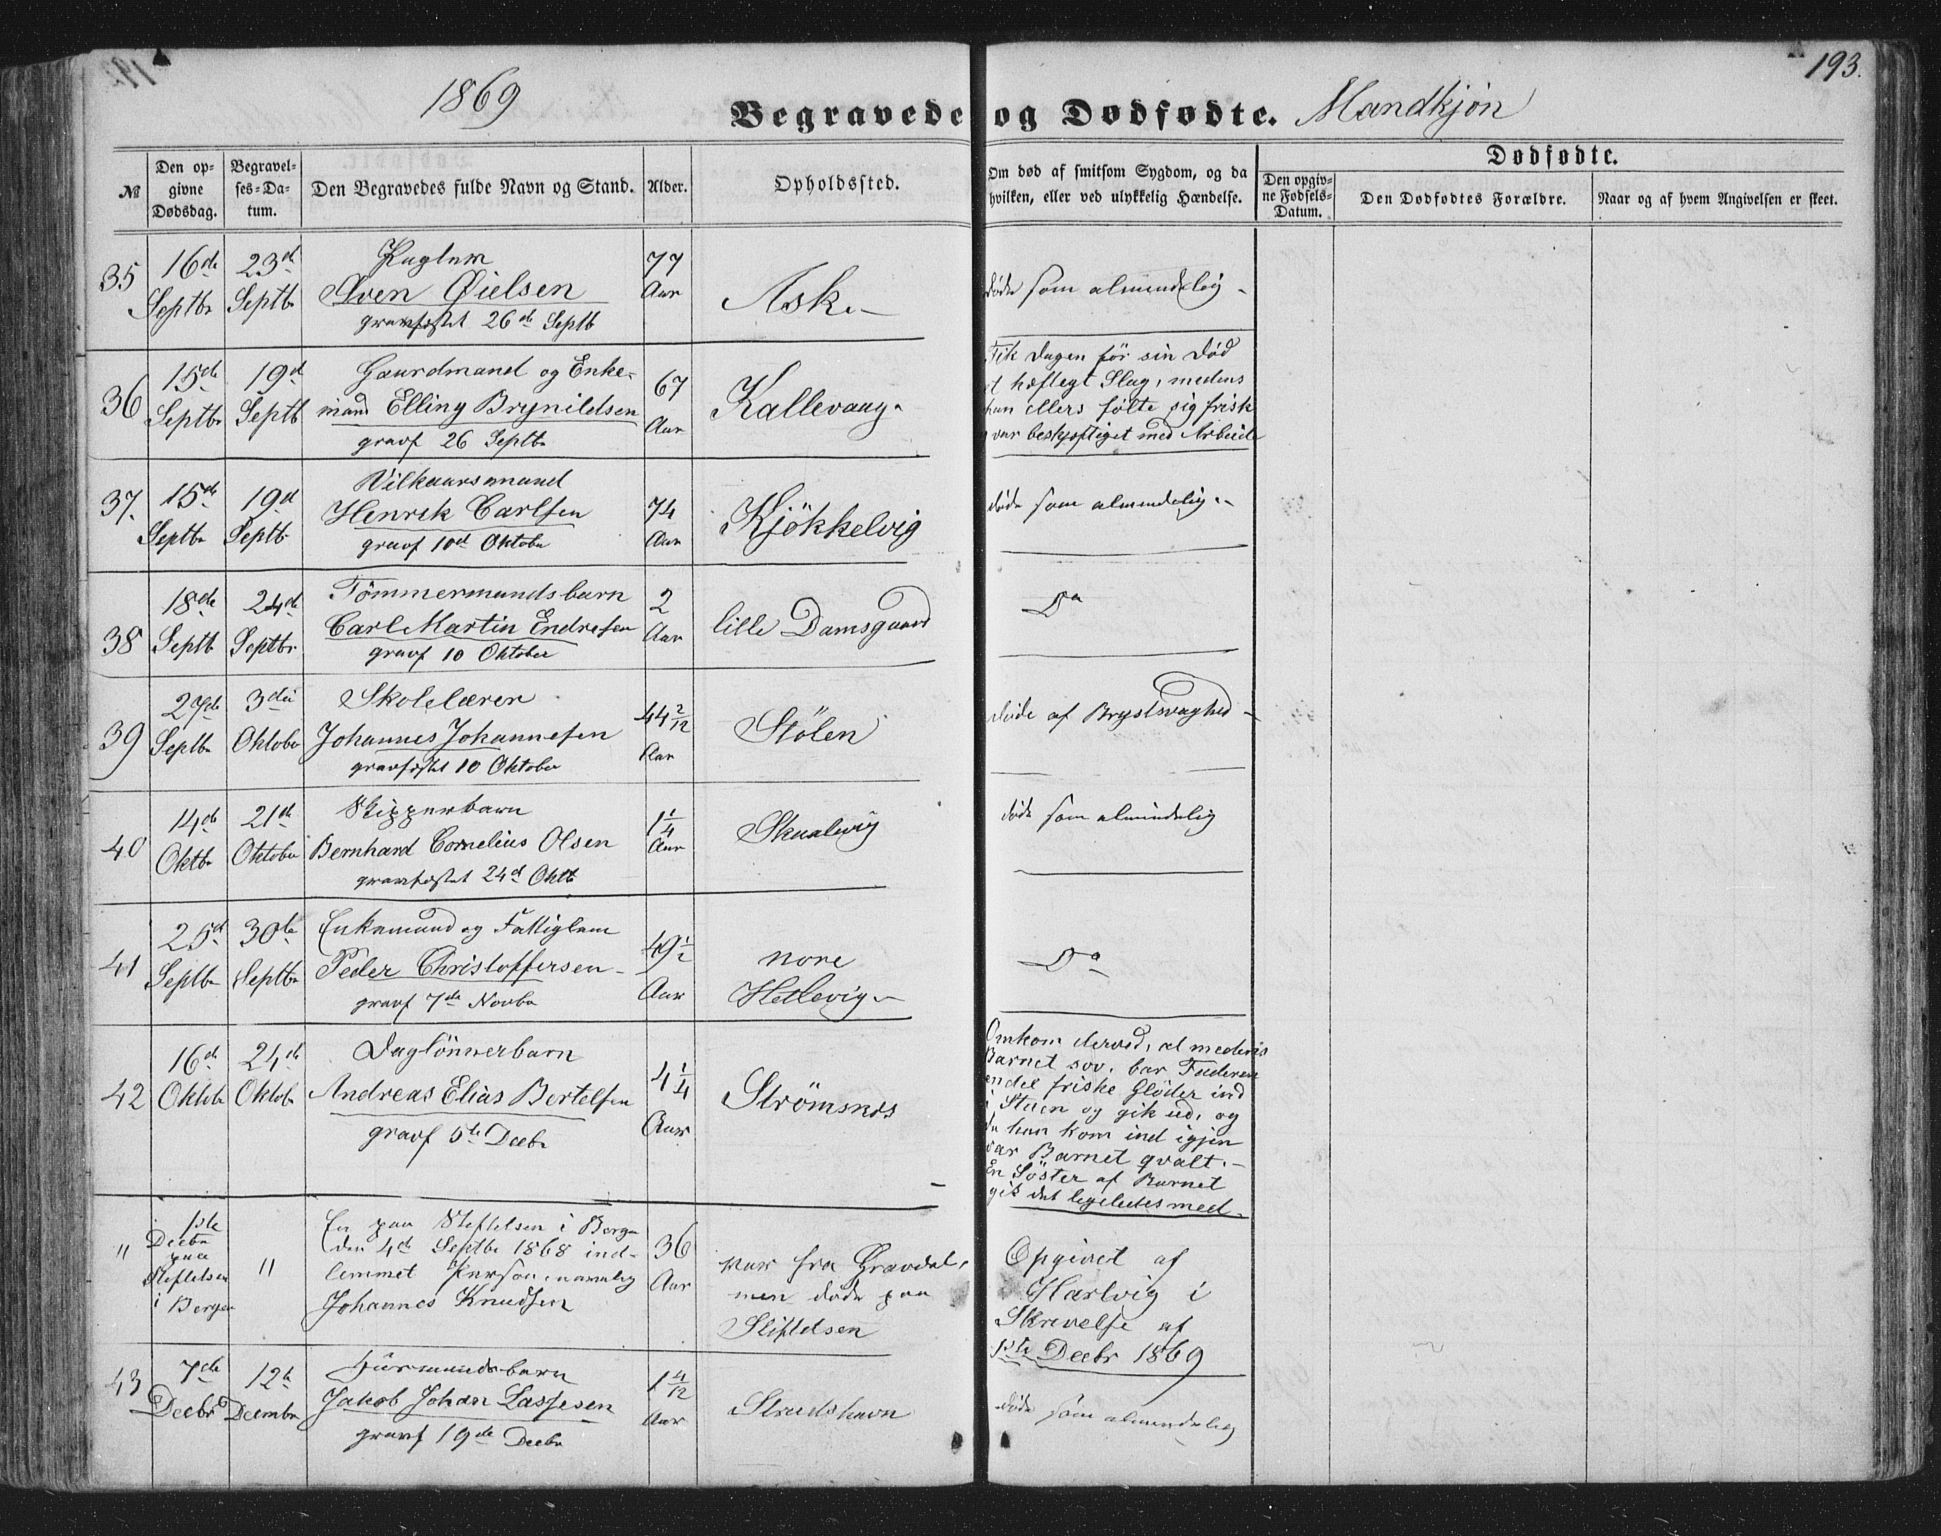 193.
1869
Begravede og Dødfødte. Mandkjön
№
Den opgivne Dødsdag.
Begravelses-Datum.
Den Begravedes fulde Navn og Stand.
Alder.
Opholdssted.
Om død af smitsom Sygdom, og da hvilken, eller ved ulykkelig Hændelse.
Dødfødte.
Den opgivne Fødsels-Datum.
Den Dødfødtes Forældre.
Naar og af hvem Angivelsen er skeet.
35
16de Septbr
23d Septbr
Sven Öielsen
gravfæstet 26de Septb
77 Aar
Ask
döde som almindelig
36
15de Septbr
19d Septb
Gaardmand og Enkemand Elling Brynildsen
gravf 26 Septbr
67 Aar
Kallevaag
Fik Dagen för sin Död
et hæftigt Slag, medens
han ellers fölte sig frisk
var beskjæftiget med Arbeide
37.
15de Septbr
19d Septbr
Vilkaarsmand
Henrik Carlsen
gravf 10d Oktober
74 Aar
Kjökkelvig
döde som almindelig
38
18de Septb
24de Septbr
Tömmermandsbarn
Carl Martin Endresen
gravf 10 Oktober
2 Aar
lille Damsgaard
Do
39
27de Septbr
3die Oktober
Skolelærer
Johannes Johannesen
gravfæstet 10 Oktober
44 2/12 Aar
Stölen
döde af Brystsvaghed
40
14de Oktbr
21de Oktober
Skipperbarn
Bernhard Cornelius Olsen
gravfæstet 24d Oktb
1 1/4 Aar
Skaalevig
döde som almindelig
41
25d Septbr
30te Septbr
Enkemand og Fattiglem
Peder Christoffersen
gravf 7de Novbr
49 1/2 Aar
nore
Hetlevig
Do
42
16d Oktbr
24de Oktobr
Daglönnerbarn
Andreas Elias Bertelsen
gravf 5te Decbr
4 1/4 Aar
Strömsnes
Omkom derved, at medens
Barnet sov, bar Faderen
endel friske Glöder ind
i Stuen og gik ud, og
da han kom ind igjen
var Barnet qvalt.
En Söster af Barnet
gik det ligeledes med
"
1ste Decbr
paa
Stiftelsen
i Bergen
"
En paa Stiftelsen i Bergen
den 4de Septbr 1868 indlemmet Person, navnlig
Johannes Knudsen
36 Aar
var fra Gravdal,
men döde paa
Stiftelsen
Opgivet af
Hartvig i
Skrivelse af
1ste Decbr 1869
43
7de Decbr
12te Decembr
Huusmandsbarn
Jakob Johan Lassesen
gravf 19de Decbr
1 4/12 Aar
Strudshavn
döde som almindelig